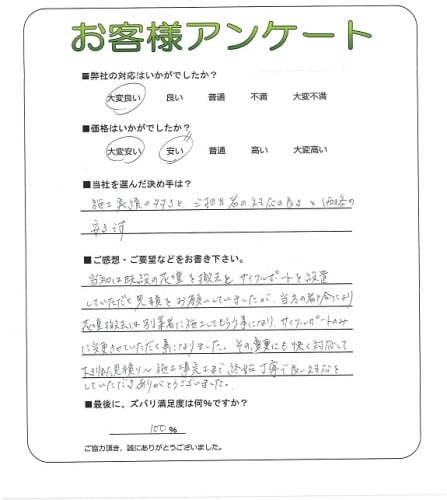 お客様アンケート
■弊社の対応はいかがでしたか？
大変良い 良い 普通 不満 大変不満
■価格はいかがでしたか？
大変安い 安い 普通 高い 大変高い
■当社を選んだ決め手は？
施工実績の多さと、ご担当者の対応の良さと価格の
安さです
■ご感想・ご要望などをお書き下さい。
当初は既設の花壇を撤去し サイクルポートを設置
していただく見積をお願いしていましたが、当方の都合により
花壇撤去は別業者に施工してもらう事になり、サイクルポートのみ
に変更させていただく事になりました。その変更にも快く対応して
下さり見積り〜施工完了まで終始丁寧で良い対応を
していただきありがとうございました。
■最後に、ズバリ満足度は何％ですか？
100 %
ご協力頂き、誠にありがとうございました。